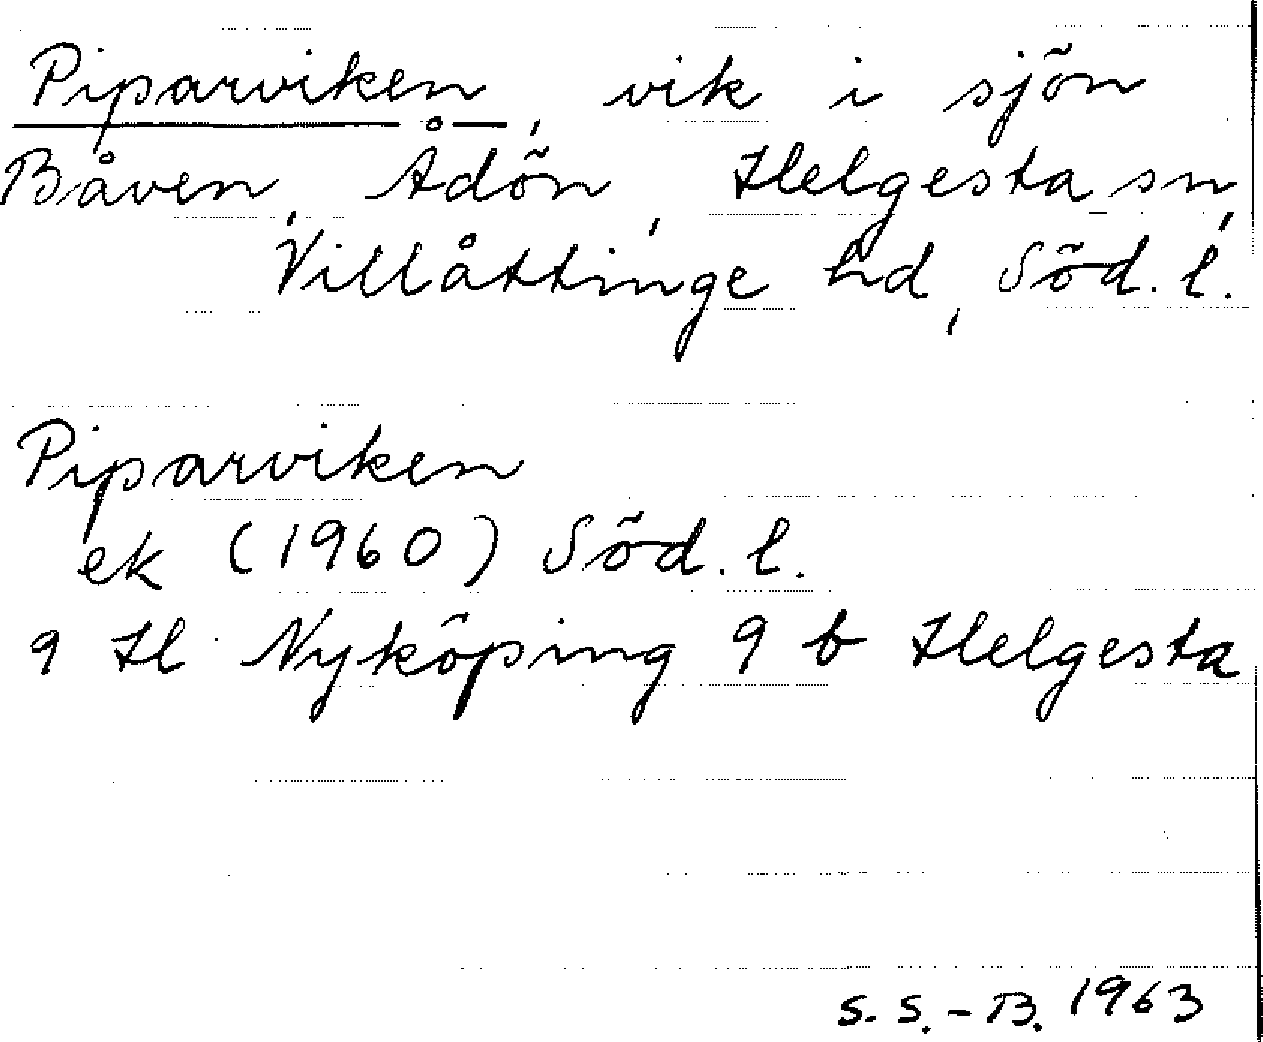 Piparviken, vik i sjön
Båven, Ådön, Helgesta sn,
Villåttinge hd, Söd. l.
Piparviken
ek (1960) Söd. l.
9 H Nyköping 9 b Helgesta
S. S.-B. 1963